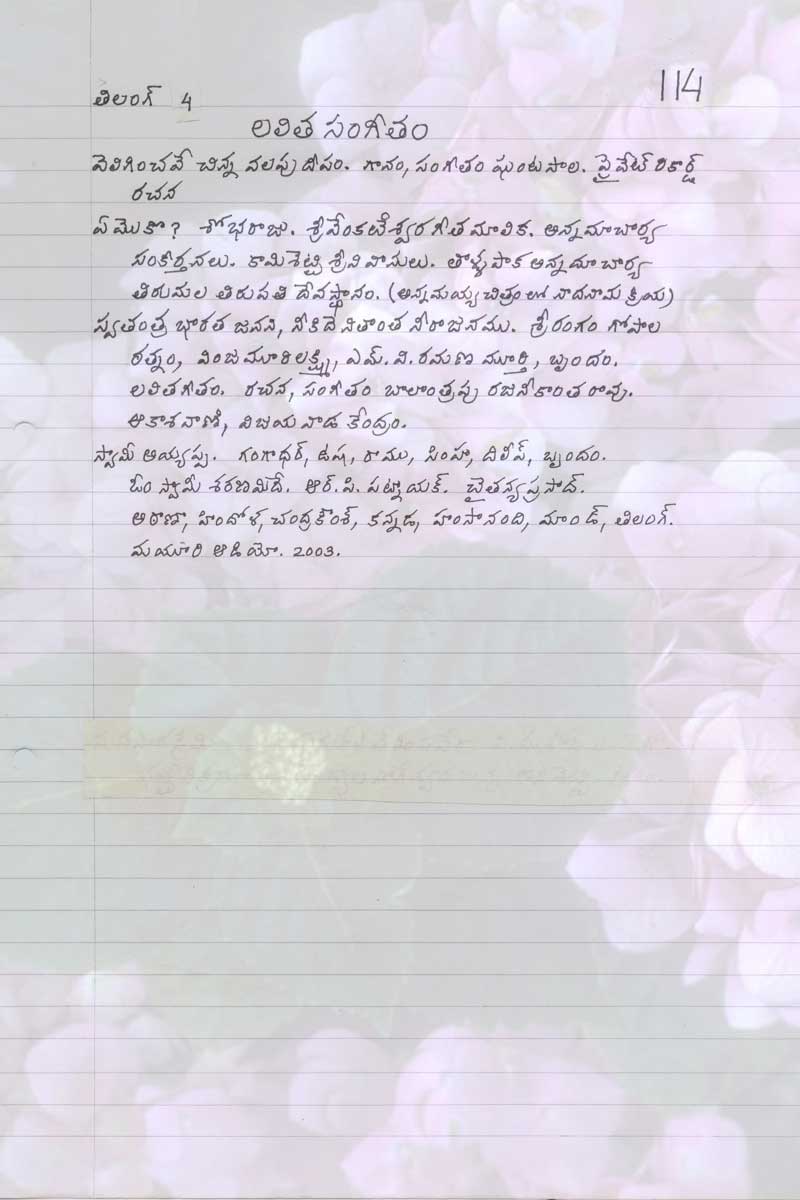 114
తిలంగ్ 4
లలిత సంగీతం
వెలిగించవే చిన్న వలపు దీపం. గానం, సంగీతం ఘంటసాల. ప్రైవేట్ రికార్డ్
రచన
ఏమొకొ? శోభరాజు. శ్రీవేంకటేశ్వరగీతమాలిక. అన్నమాచార్య
సంకీర్తనలు. కామిశెట్టి శ్రీనివాసులు. తాళ్ళపాక అన్నమాచార్య
తిరుమల తిరుపతి దేవస్థానం. (అన్నమయ్య చిత్రంలో నాదనామక్రియ)
స్వతంత్ర భారత జనని, నీకిదే నితాంత నీరాజనము. శ్రీరంగం గోపాల
రత్నం, వింజమూరి లక్ష్మి, ఎమ్.వి.రమణ మూర్తి, బృందం.
లలితగీతం. రచన, సంగీతం బాలాంత్రపు రజనీకాంతరావు.
ఆకాశవాణి, విజయవాడ కేంద్రం.
స్వామీ అయ్యప్ప. గంగాధర్, ఉష, రాము, సింహా, దిలీప్, బృందం.
ఓం స్వామీ శరణమిదే. ఆర్.పి. పట్నాయక్. చైతన్యప్రసాద్.
అఠాణా, హిందోళ, చంద్రకౌంశ్, కన్నడ, హంసానంది, మాండ్, తిలంగ్.
మయూరి ఆడియో. 2003.